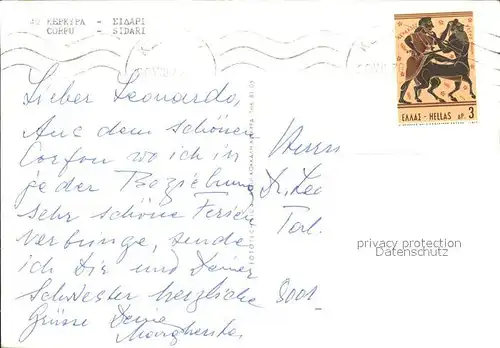 42 ΚΕΡΚΥΡΑ - ΣΙΔΑΡΙ
CORFU - SIDARI
Lieber Leonardo,
Aus dem schönen
Corfou wo ich in
jeder Beziehung
sehr schöne Ferien
verbringe, sende
ich Dir und Deiner
Schwester herzliche
Grüsse Deine
Margherita
ΕΛΛΑΣ - HELLAS ΔΡ. 3
Herrn
Dr. Leo
privacy protection
Datenschutz